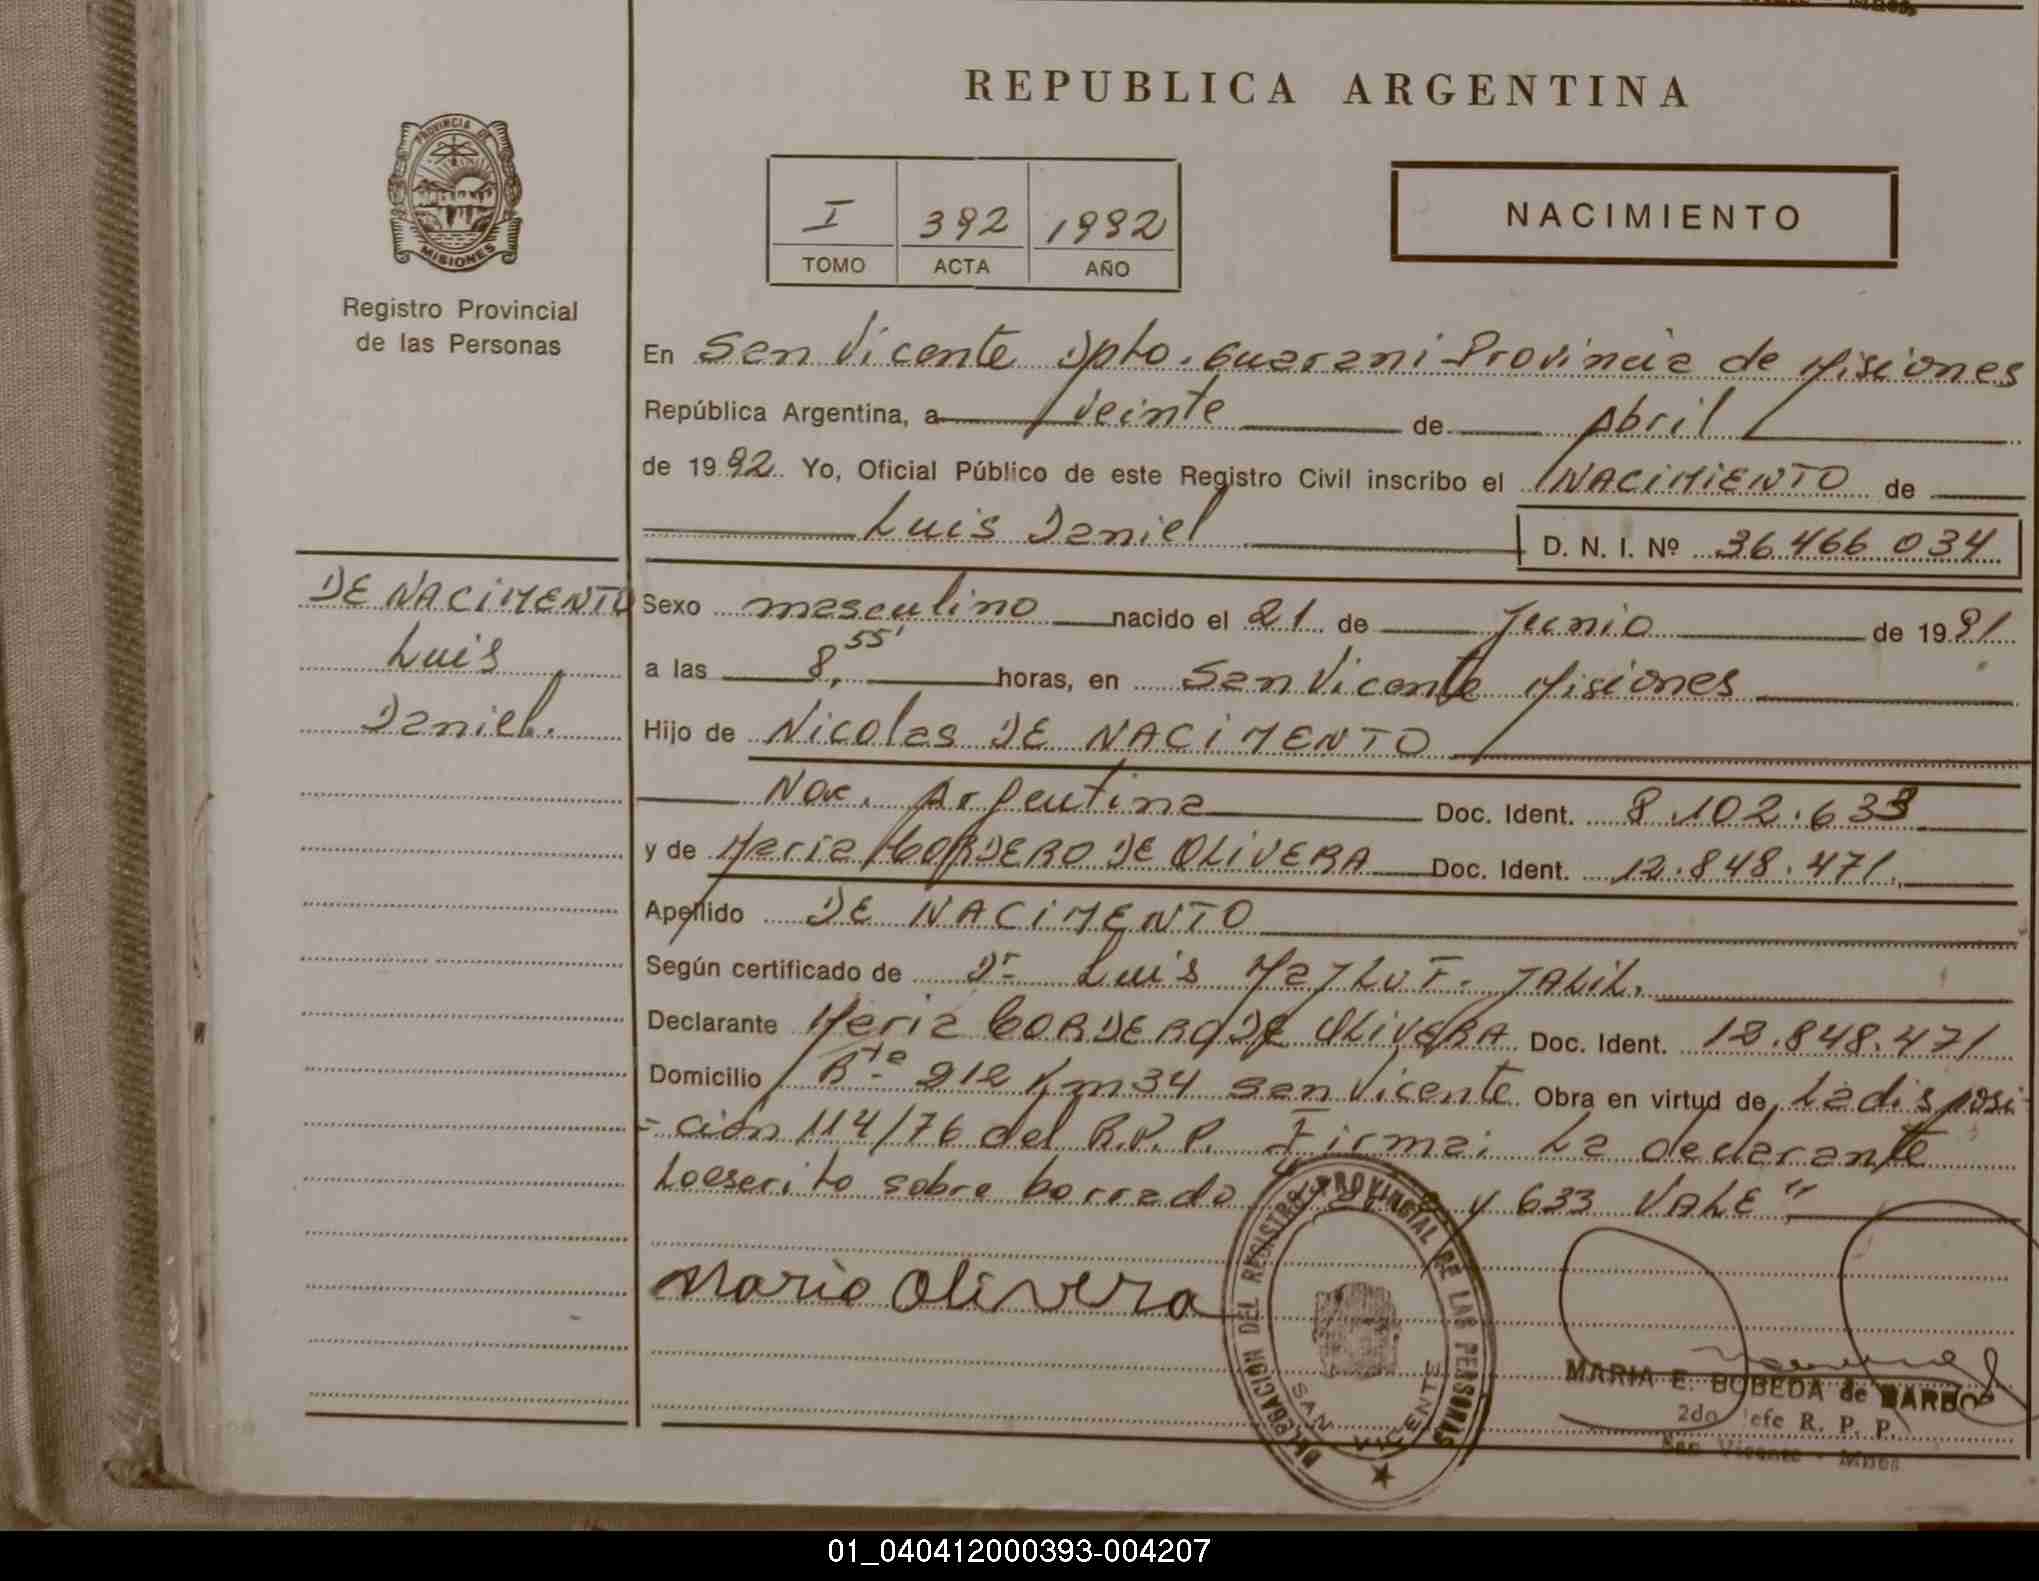 REPUBLICA ARGENTINA
PROVINCIA DE
MISIONES
Registro Provincial
de las Personas
I 392 1992
TOMO ACTA AÑO
NACIMIENTO
En San Vicente Dpto. Guarani Provincia de Misiones
República Argentina, a veinte de Abril
de 1992. Yo, Oficial Público de este Registro Civil inscribo el NACIMIENTO de
Luis Daniel D. N. I. Nº 36.466.034
DE NACIMENTO
Luis
Daniel.
Sexo masculino nacido el 21 de Junio de 1991
a las 8,55' horas, en San Vicente Misiones
Hijo de Nicolas DE NACIMENTO
Nac. Argentina Doc. Ident. 8.102.633
y de Maria CORDERO DE OLIVERA Doc. Ident. 12.848.471.
Apellido DE NACIMENTO
Según certificado de Dr Luis MAJLUF. JALIL.
Declarante Maria CORDERO DE OLIVERA Doc. Ident. 12.848.471
Domicilio Rta 212 Km 34 San Vicente Obra en virtud de La disposi-
=ción 114/76 del R.P.P. Firma: La declarante
Lo escrito sobre borrado y 633 VALE"
Maria Olivera
DELEGACION DEL REGISTRO PROVINCIAL DE LAS PERSONAS
SAN VICENTE
MARIA E. BOBEDA de BARBO
2do Jefe R. P. P.
San Vicente - Mnes
01_040412000393-004207